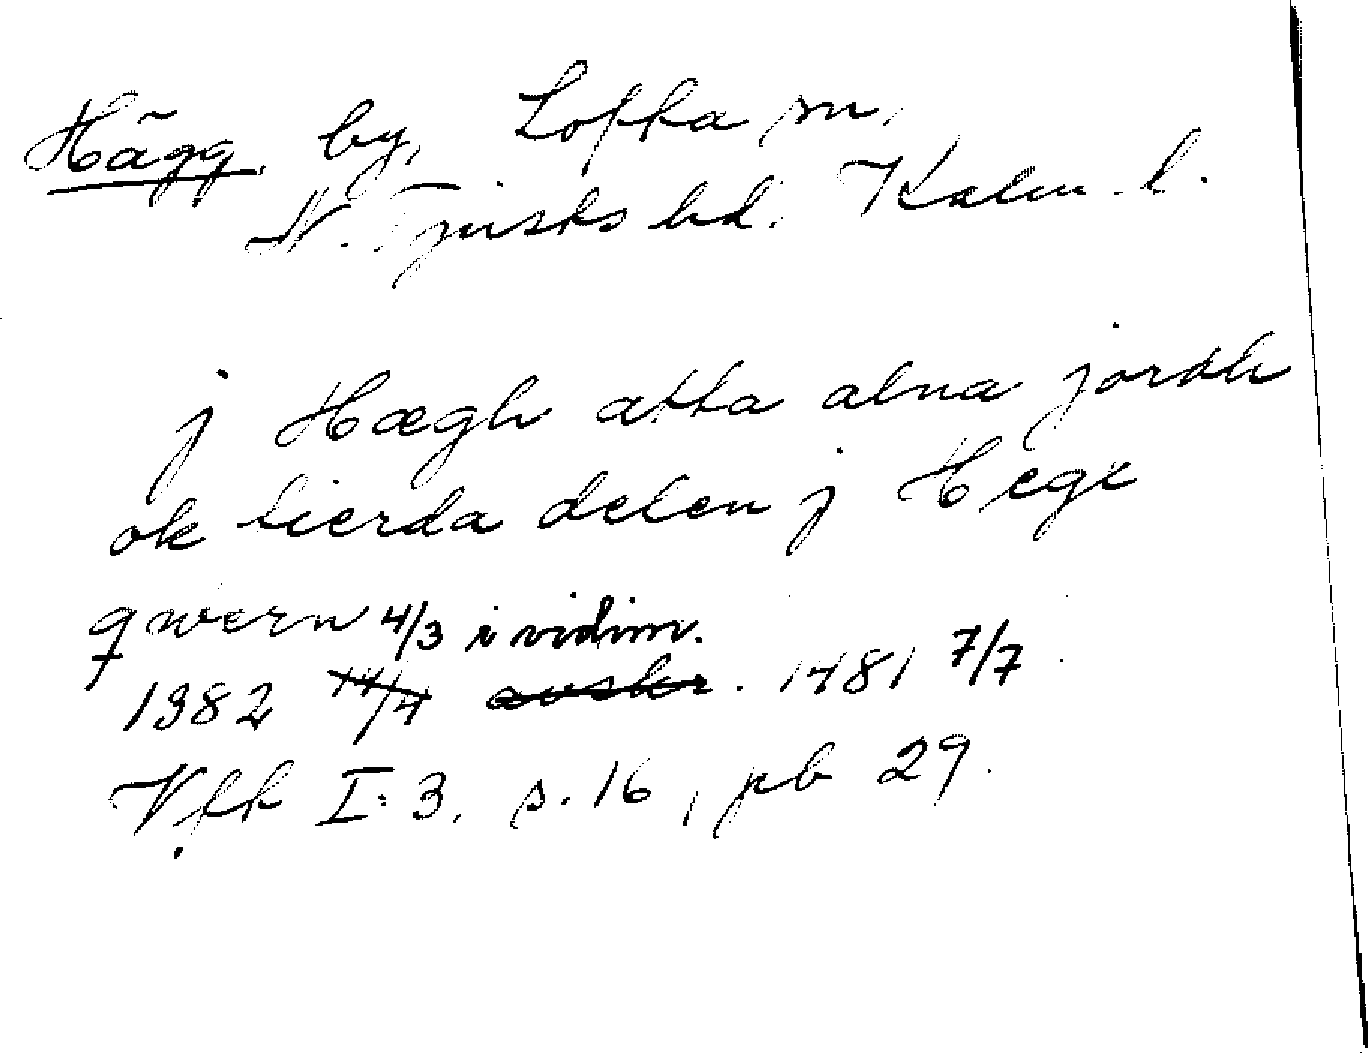 Hägg, by, Lofta sn,
N. Tjusts hd. Kalm. l.
j Hægh atta alna jordh
ok fierda delen j Hege
qwern 4/3 i vidim.
1382 14/4 avskr. 1481 7/7
Vfk I:3, s. 16, pb 29.